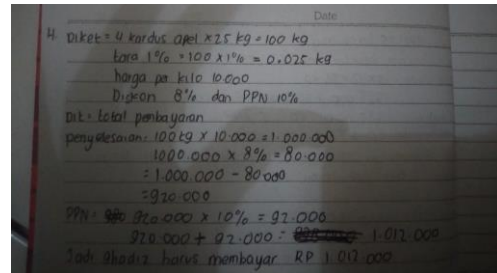 Date
4. Diket = 4 kardus apel × 25 kg = 100 kg
tara 1% = 100 × 1% = 0.025 kg
harga per kilo 10.000
Diskon 8% dan PPN 10%
Dit : total pembayaran
penyelesaian: 100 kg × 10.000 = 1.000.000
1000.000 × 8% = 80.000
= 1.000.000 - 80.000
= 920.000
PPN : 920.000 × 10% = 92.000
920.000 + 92.000 = 1.012.000
Jadi ghadiz harus membayar RP 1.012.000